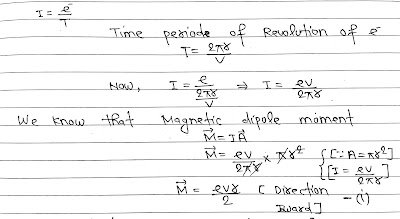 I = e⁻/T
Time periode of Revolution of e⁻
T = 2πr/V
Now, I = e/(2πr/V) ⇒ I = ev/2πr
We know that Magnetic dipole moment
M⃗ = IA⃗
M⃗ = ev/2πr × πr² {[∵ A = πr²]
{[I = ev/2πr]
M⃗ = evr/2 [Direction Inward] —(i)